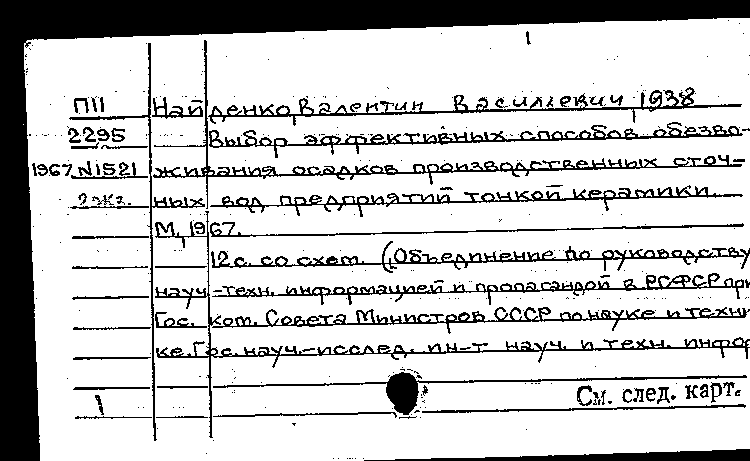 1
П11 Найденко, Валентин Васильевич, 1938
2295 Выбор эффективных способов обезво-
1967 N1521 живания осадков производственных сточ-
2 экз. ных вод предприятий тонкой керамики.
М., 1967.
12с. со схем. (Объединение по руководству
науч.-техн. информацией и пропагандой в РСФСР при
Гос. ком. Совета Министров СССР по науке и техни
ке. Гос. науч.-исслед. ин-т науч. и техн. инфор
1 См. след. карт.